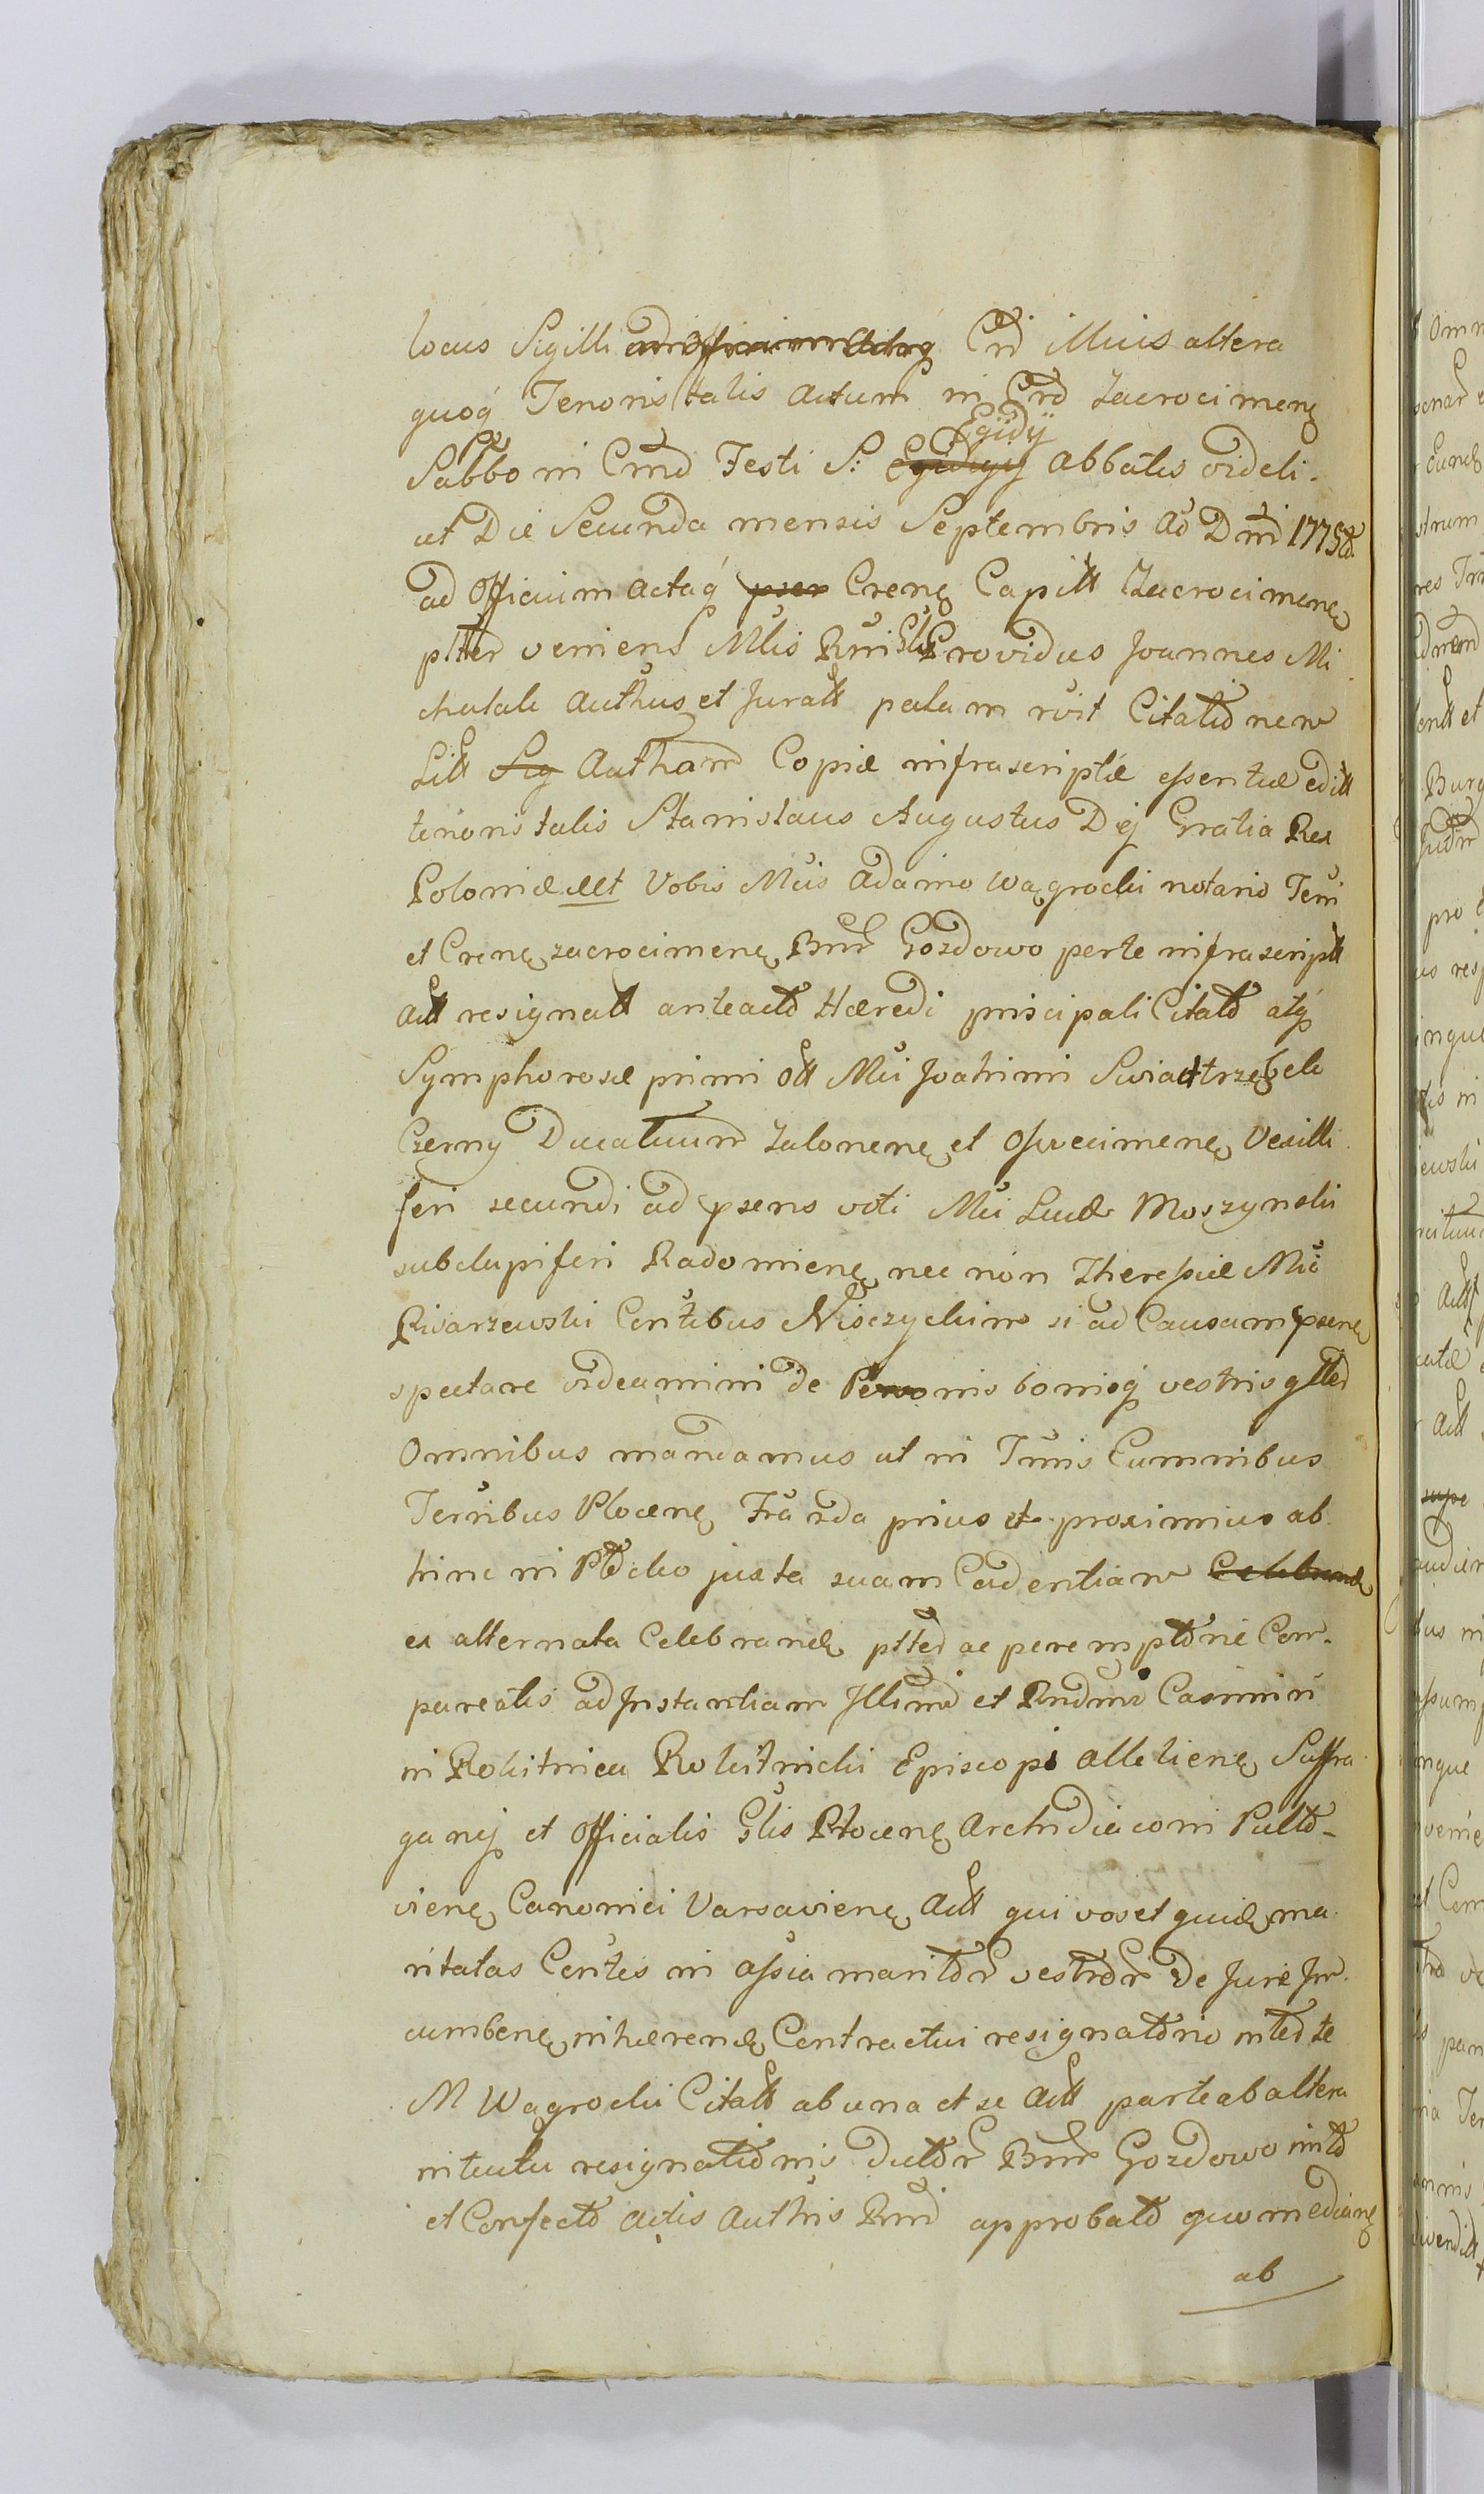 locus Sigilli ad Officium Actaq Crd illius altera
quoq Tenoris talis Actum in Crd Zacrocimens
Sabbo in Cmd Festi S: Egidygy Egidÿ Abbatis videli-
cet Die Secunda mensis Septembris Ad Dmd 1775to
ad Officium actaq pser Crens Capitt Zacrocimens
pltter veniens Mlis Rmi Glis Providus Joannes Mi
chalak Authus et Juratt palam rvit Citatdnem
Litt Sig Autham Copiæ infrascriptæ essentiæ editt
tenoris talis Stanislaus Augustus Dej Gratia Rex
Poloniæ ett Vobis Mcis Adamo Wągrocki notario Terri
et Crens zacrocimens Bnr Gozdowo perte infrascriptt
Actt resignatt anteactd Hæredi principali Citatd atq
Symphorosæ primi ott Mci Joahimi Swiattrzębek
Czerny Ducatuum Zatonens et Oswecimens Vexilli
feri secundi ad psens voti Mci Lucæ Moszynski
subdapiferi Radomiens nec non Theresiæ Mci
Pisarzewski Contibus Nisczyckim si ad Causam psens
spectare videamini de Personis bonisq vestris gtted
Omnibus mandamus ut in Tmis Eumnibus
Terribus Plocens Frarda prius et proximius ab
hinc in Ptdcko juxta suam Cadentiam Celebrand
ex alternata Celebrands ptted ac peremptdrie Com-
pareatis ad Instantiam Illimd et Rndmi Casimiri
in Rokitnica Rokitnicki Episcopi Alleliens Suffra
ganej et Officialis Glis Plocens Archidiaconi Pultd-
viens Canonici Varsaviens Actt qui vos et quids ma
ritatas Contes in assia maritdr vestrdr de Jure In
cumbens inhærends Contractui resignatdrio inted te
M Wągrocki Citatt ab una et se Actt parte ab altera
intuitu resignatidnis dictdr Bnr Gozdowo initd
et Confectd Actis Authis Rmd approbatd quo medians
ab